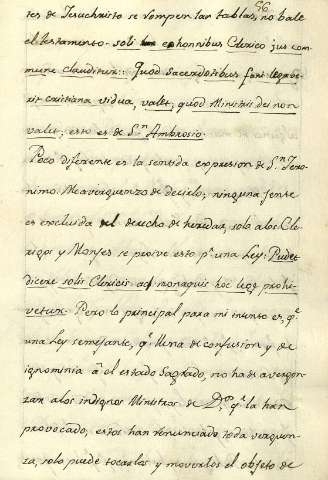 56
tes de Jesuchristo se rompen las tablas, no bale
el testamento. soli ex honnibus Clerico jus com
mune clauditur: Quod Sacerdotibus fani legabe
rit cristiana vidua, valet; quod Ministris dei non
valet; esto es de S.n Ambrosio.
Poco diferente es la sentida expresion de S.n Jero
nimo. Me averguenzo de decirlo; ninguna jente
es excluida del derecho de heredar, solo a los Cle
rigos y Monjes se proive esto p.r una Ley: Pudet
dicere solis Clericis ad monaquis hoc lege prohi
vetur. Pero lo principal para mi intento es, q.e
una Ley semejante, q.e llena de confusion y de
ignominia â el estado Sagrado, no ha de avergon
zar a los indignos Ministros de D.s q.e la han
provocado; estos han renunciado toda verguen
za, solo puede tocarlos y moverlos el objeto de